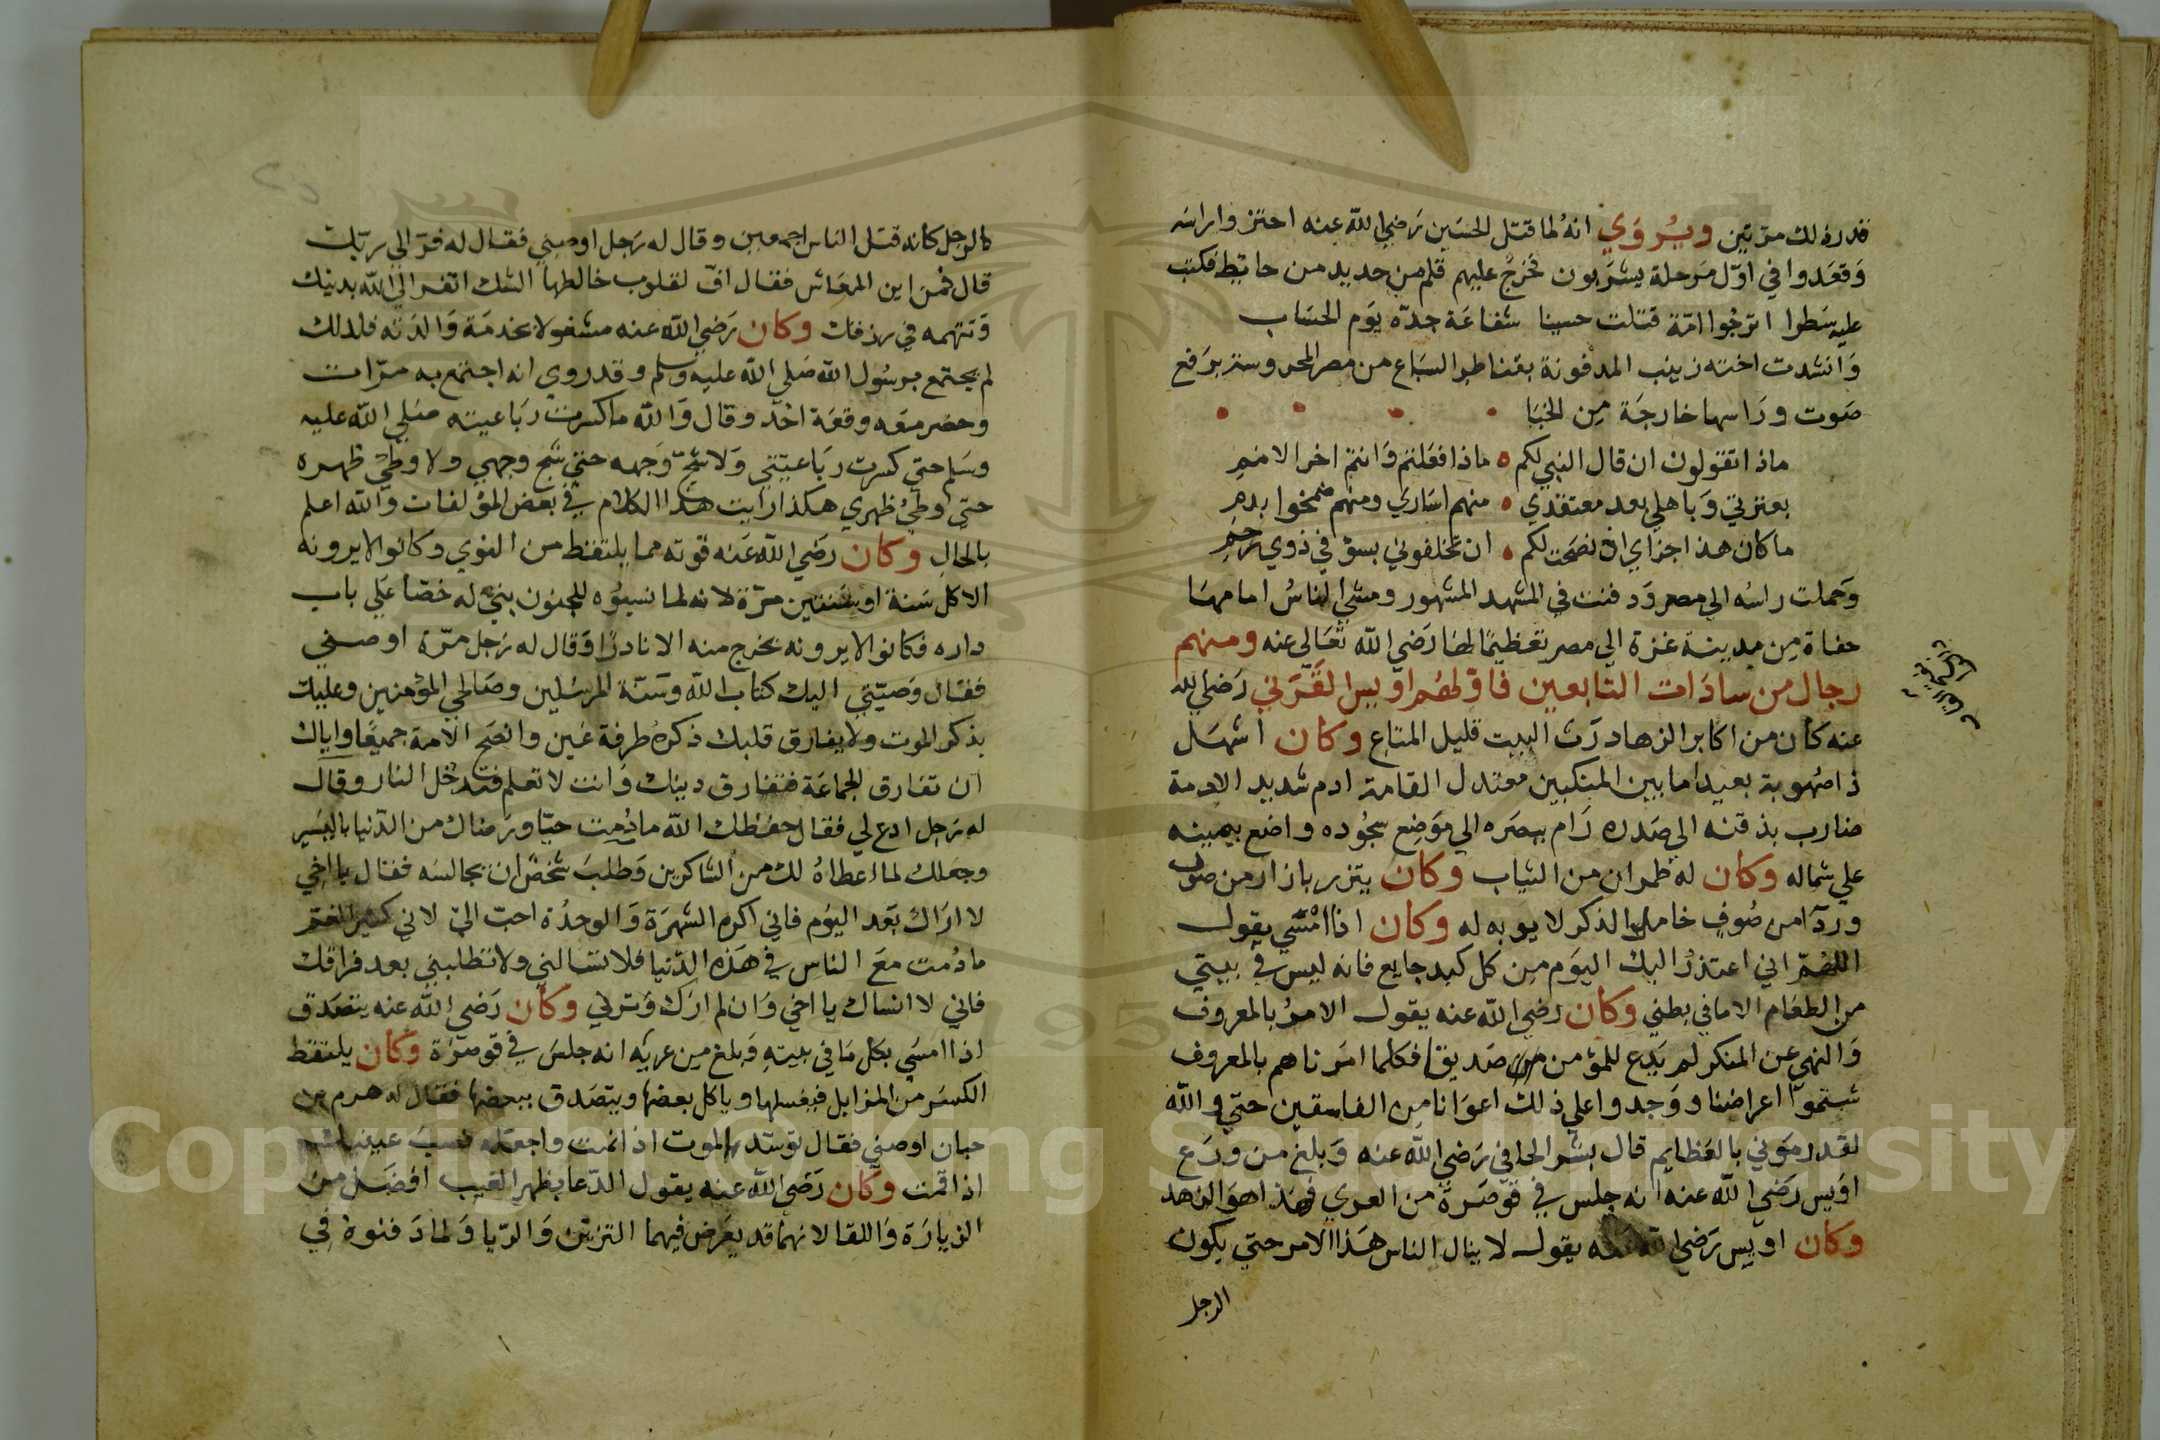 قدره لك مرتين ويروي انه لما قتل الحسين رضي الله عنه احتزوا راسه
وقعدوا في اول مرحلة يشربون فخرج عليهم قلم من حديد من حايط فكتب
عليه سطرا اترجوا امة قتلت حسينا شفاعة جده يوم الحساب
وانشدت اخته زينب المدفونة بقناطر السباع من مصر المحروسة برفع
صوت وراسها خارجة من الخبا
ماذا تقولون ان قال النبي لكم ماذا فعلتم وانتم اخر الامم
بعترتي وباهلي بعد مفتقدي منهم اساري ومنهم ضمخوا بدم
ما كان هذا جزاي اذ نصحت لكم ان تخلفوني بسؤ في ذوي رحم
وحملت راسه الي مصر ودفنت في المشهد المشهور ومشي الناس امامها
حفاة من مدينة غزة الي مصر تعظيما لها رضي الله تعالي عنه ومنهم
رجال من سادات التابعين فاولهم اويس القرني رضي الله
عنه كان من اكابر الزهاد رث البيت قليل المتاع وكان اشهل
ذا صهوبة بعيد ما بين المنكبين معتدل القامة ادم شديد الادمة
ضارب بذقنه الي صدره رام ببصره الي موضع سجوده واضع يمينه
علي شماله وكان له طمران من الثياب وكان يتزر بازار من صوف
وردا من صوف خامل الذكر لا يوبه له وكان اذا امسي يقول
اللهم اني اعتذر اليك اليوم من كل كبد جايع فانه ليس في بيتي
من الطعام الا ما في بطني وكان رضي الله عنه يقول الامر بالمعروف
والنهي عن المنكر لم يدع للمؤمن من صديق فكلما امرناهم بالمعروف
شتموا اعراضنا ووجدوا علي ذلك اعوانا من الفاسقين حتي والله
لقد رموني بالعظايم قال بشر الحافي رضي الله عنه وبلغ من ورع
اويس رضي الله عنه انه جلس في قوصرة من العري فهذا هو الزهد
وكان اويس رضي الله عنه يقول لا ينال الناس هذا الامر حتي يكون
الرجل
كالرجل كانه قتل الناس اجمعين وقال له رجل اوصني فقال له فر الي ربك
قال فمن اين المعاش فقال اف لقلوب خالطها الشك اتفر الي الله بدينك
وتتهمه في رزقك وكان رضي الله عنه مشغولا بخدمة والدته فلذلك
لم يجتمع برسول الله صلي الله عليه وسلم وقد روي انه اجتمع به مرات
وحضر معه وقعة احد وقال والله ما كسرت رباعيته صلي الله عليه
وسلم حتي كسرت رباعيتي ولا شج وجهه حتي شج وجهي ولا وطئ ظهره
حتي وطئ ظهري هكذا رايت هذا الكلام في بعض المؤلفات والله اعلم
بالحال وكان رضي الله عنه قوته مما يلتقط من النوي وكانوا لا يرونه
الا كل سنة او سنتين مرة لانه لما نسبوه للجنون بني له خصا علي باب
داره فكانوا لا يرونه يخرج منه الا نادرا وقال له رجل مرة اوصني
فقال وصيتي اليك كتاب الله وسنة المرسلين وصالحي المؤمنين وعليك
بذكر الموت ولا يفارق قلبك ذكره طرفة عين وانصح الامة جميعا واياك
ان تفارق الجماعة فتفارق دينك وانت لا تعلم فتدخل النار وقال
له رجل ادع لي فقال حفظك الله ما دمت حيا ورضاك من الدنيا باليسير
وجعلك لما اعطاه لك من الشاكرين وطلب شخص ان يجالسه فقال يا اخي
لا اراك بعد اليوم فاني اكره الشهرة والوحدة احب الي لاني كثير الغم
ما دمت مع الناس في هذه الدنيا فلا تسالني ولا تطلبني بعد فراقك
فاني لا انساك يا اخي وان لم ارك وترني وكان رضي الله عنه يتصدق
اذا امسي بكل ما في بيته وبلغ من عريه انه جلس في قوصرة وكان يلتقط
الكسر من المزابل فيغسلها وياكل بعضها ويتصدق ببعضها فقال له هرم بن
حبان اوصني فقال توسد الموت اذا نمت واجعله نصب عينيك
اذا قمت وكان رضي الله عنه يقول الدعا بظهر الغيب افضل من
الزيارة واللقا لانهما قد يعرض فيهما التزين والريا ولما دفنوه في
Copyright © King Saud University
195